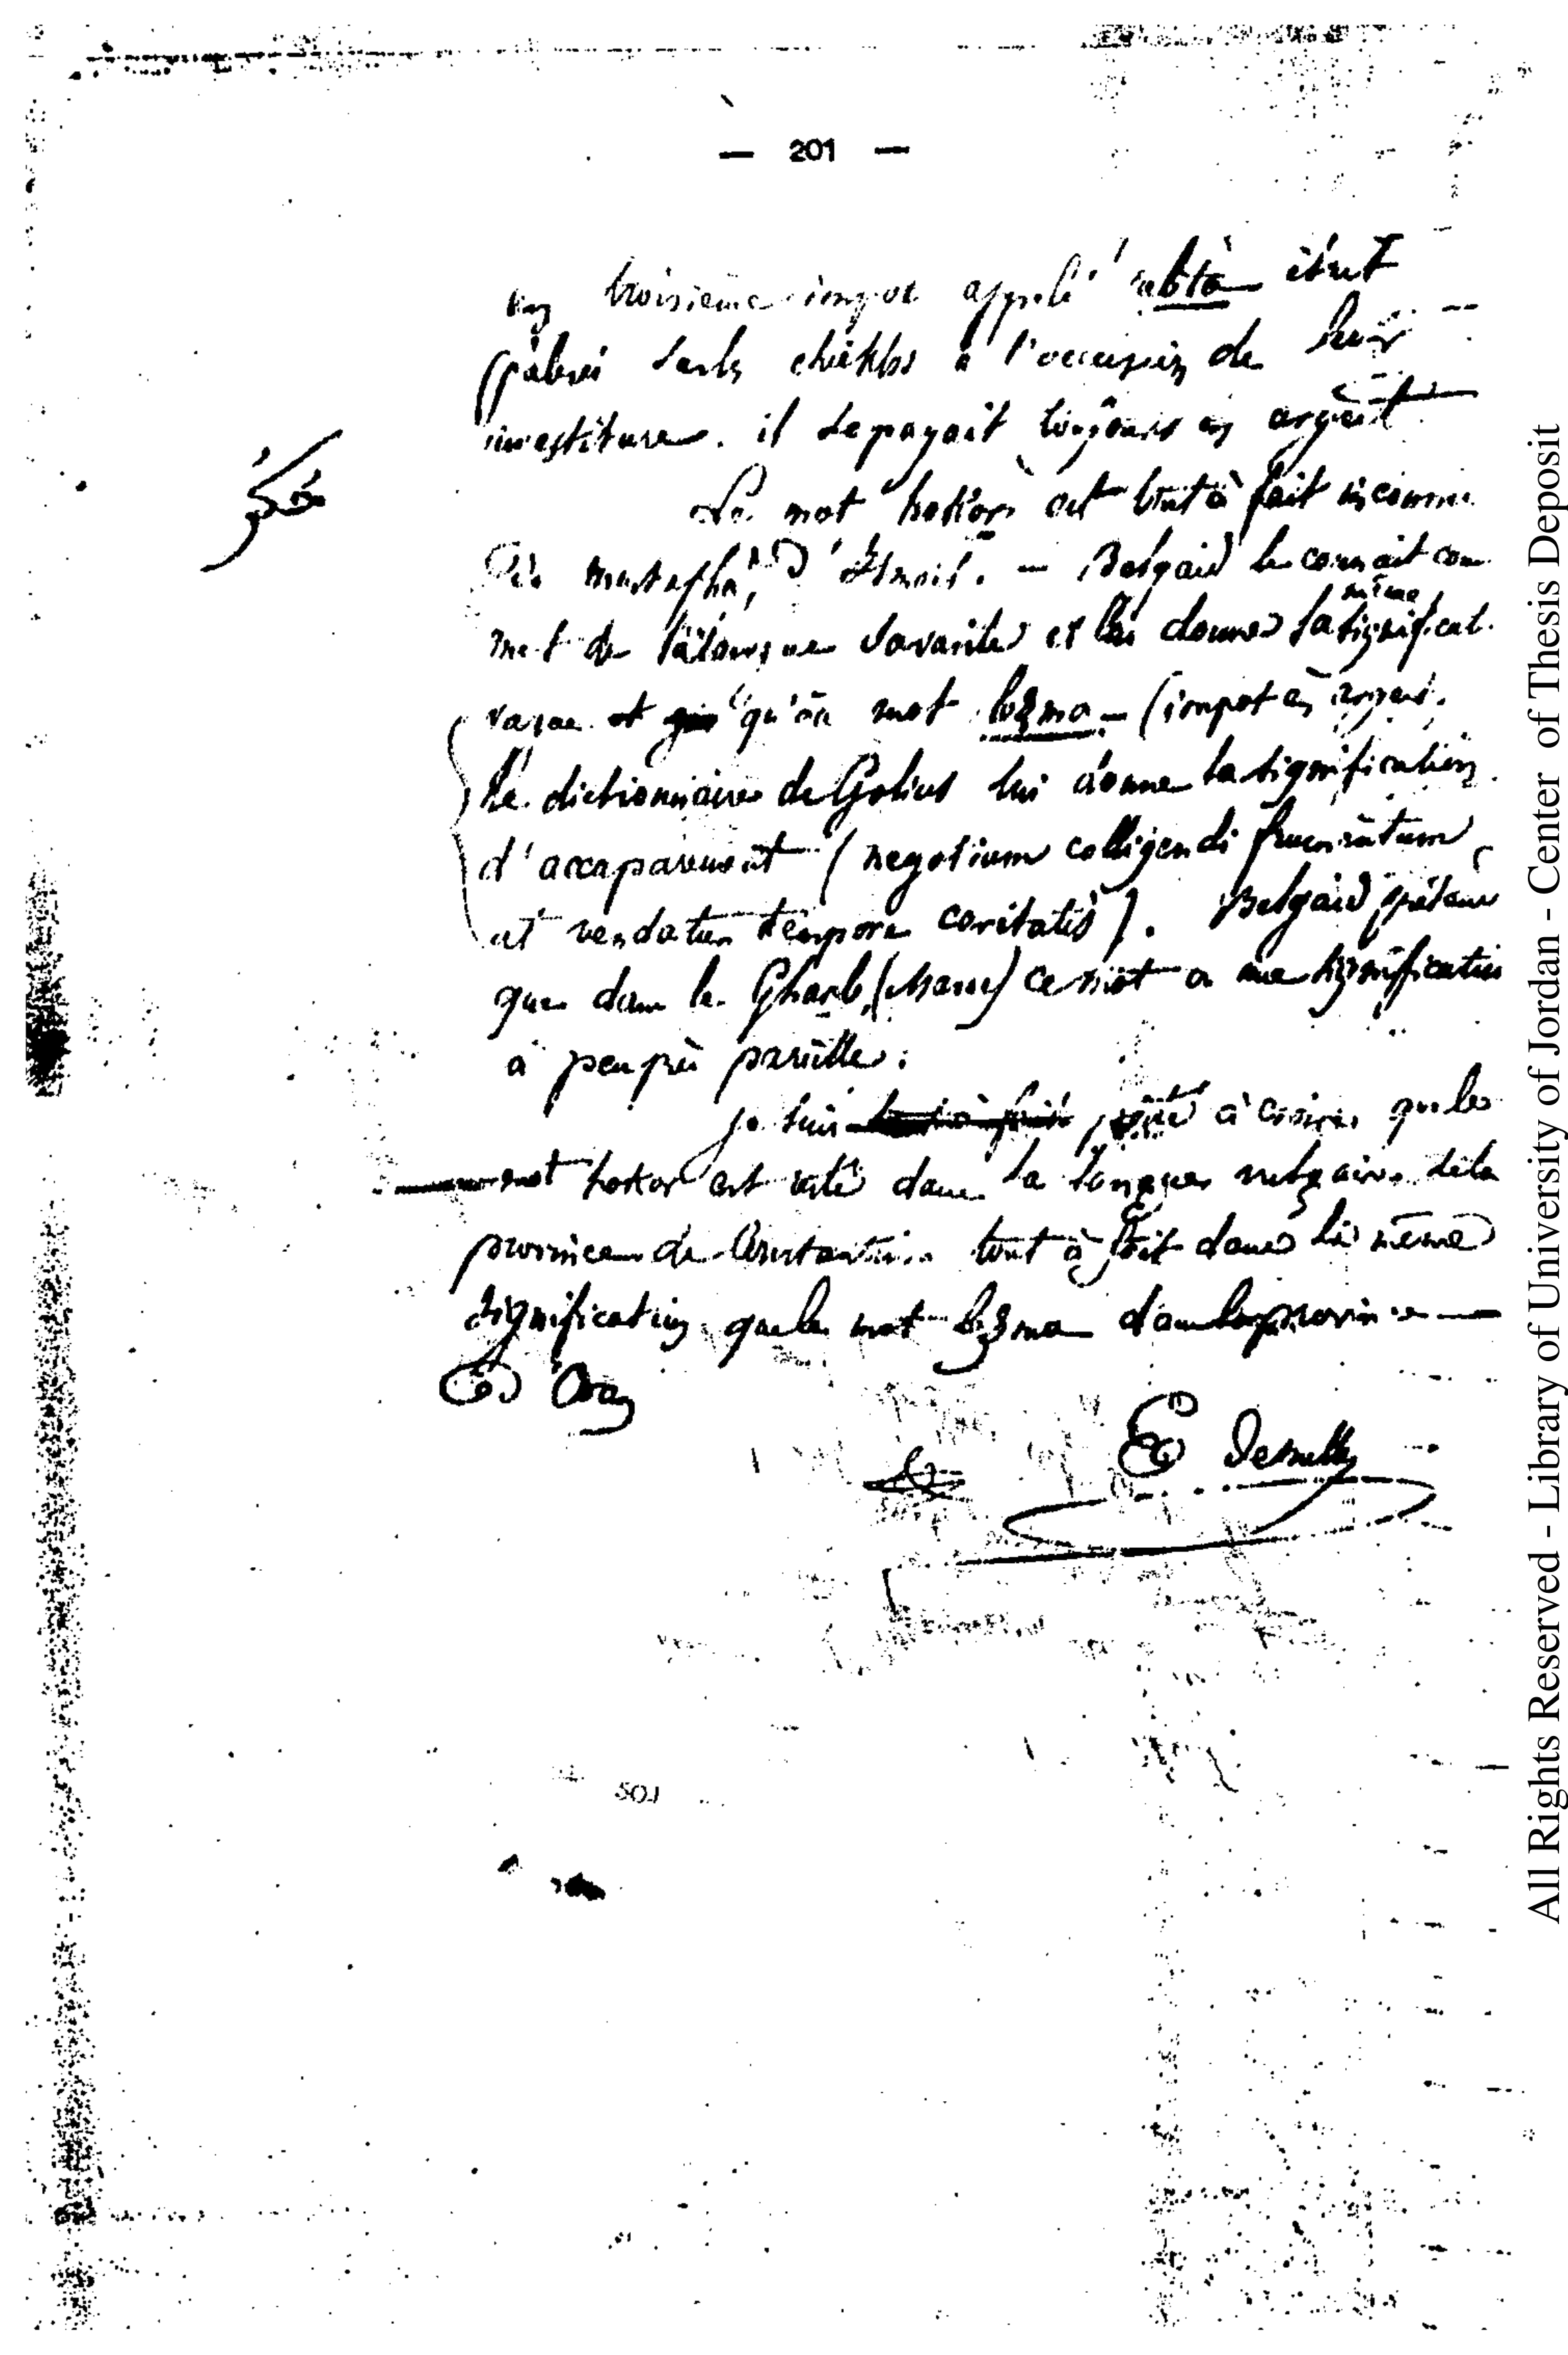 — 201 —
un troisième impot appelé sabta était
prélevé sur les cheikhs à l'occasion de leur
investiture. il se payait toujours en argent
حكر
Le mot hokor est tout à fait inconnu
De mustapha, D'Ismaïl. — Belgaid le connait com
mot de la langue savante et lui donne la même significat.
vague et qu'au mot lezma — (impot en argent.
Le dictionnaire de Golius lui donne la signification
d'accaparement (negotium colligendi frumentum
ut vendatur tempore caritatis). Belgaid prétend
que dans le Gharb (Maroc) ce mot a une signification
à peu près pareille.
Je suis porté à croire que le
mot hokor est usité dans la langue vulgaire de la
province de Constantine tout à fait dans la même
signification que le mot lezma dans la province
D'Oran
All Rights Reserved - Library of University of Jordan - Center of Thesis Deposit